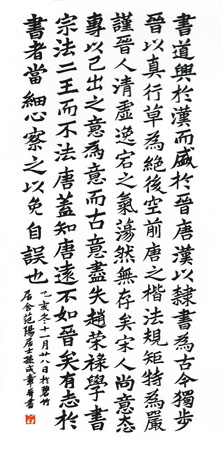 書道興於漢而盛於晉唐漢以隸書為古今獨步
晉以真行草為絕後空前唐之楷法規矩特為嚴
謹晉人清虛逸宕之氣蕩然無存矣宋人尚意态
專以己出之意為意而古意盡失趙榮祿學書
宗法二王而不法唐蓋知唐遠不如晉矣有志於
書者當細心察之以免自誤也
乙亥冬十一月廿八日於碧竹
居舍范陽居士孫成章書